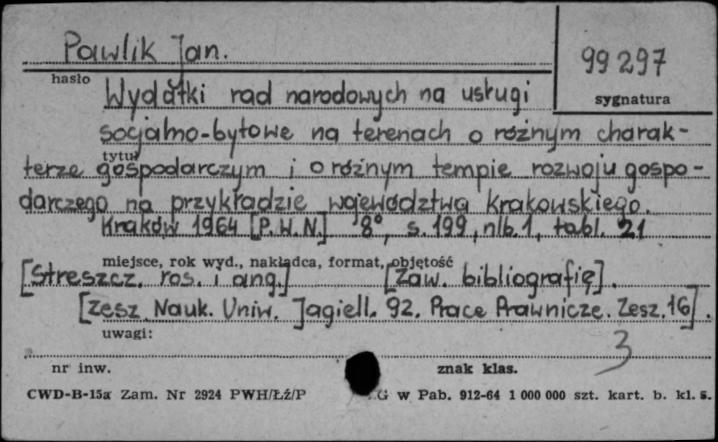 Pawlik Jan.
99 297
hasło
sygnatura
Wydatki rad narodowych na usługi
socjalno-bytowe na terenach o różnym charak-
tytuł
terze gospodarczym i o różnym tempie rozwoju gospo-
darczego na przykładzie województwa krakowskiego.
Kraków 1964 [P.W.N.] 8°, s. 199, nlb. 1, tabl. 21
miejsce, rok wyd., nakładca, format, objętość
[Streszcz. ros. i ang.] [Zaw. bibliografię].
[Zesz. Nauk. Uniw. Jagiell. 92. Prace Prawnicze. Zesz. 16].
uwagi:
3
nr inw.
znak klas.
CWD-B-15a Zam. Nr 2924 PWH/Łź/P
G w Pab. 912-64 1 000 000 szt. kart. b. kl. 5.